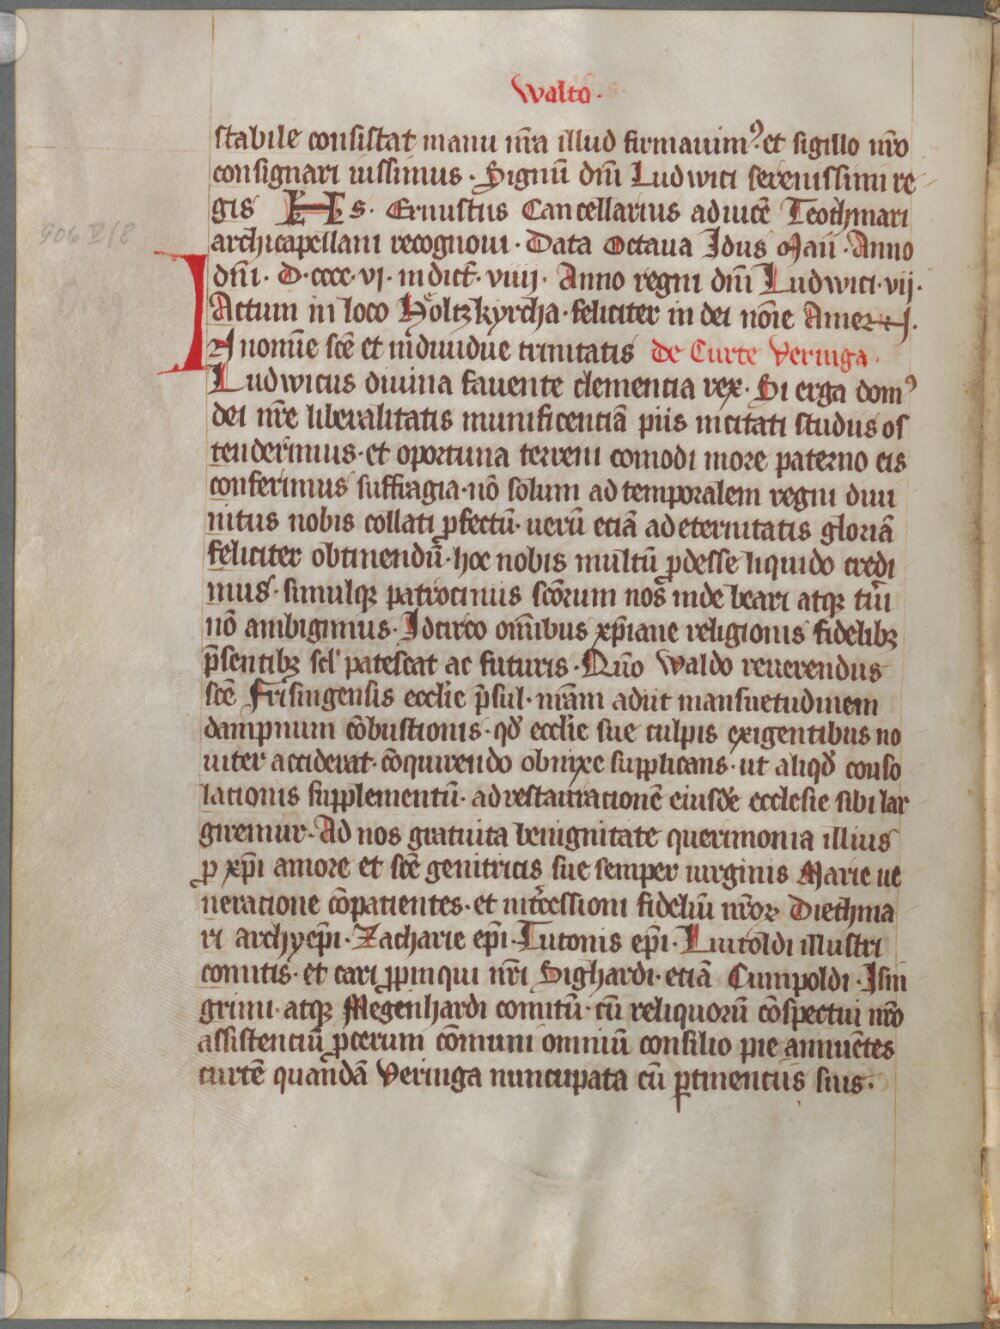 Walto·
stabile consistat manu nr̄a illud firmauimꝰ· et sigillo nr̄o
consignari iussimus · Signū dn̄i Ludwici serenissimi re
gis S· Ernustus Cancellarius aduicē Teothmari
archicapellani recognoui · Data Octaua Idus Maii · Anno
906 V/8
dn̄i · D·cccc·vi· indict̄· viiij· Anno regni dn̄i Ludwici·vij·
Orig
Actum in loco Hoͤltzkyrcha·feliciter in dei noīe Amen·
In nomīe sc̄e et indiuidue trinitatis de Curte Veringa·
Ludwicus diuina fauente clementia rex· Si erga domꝰ
dei nr̄e liberalitatis munificentiā piis incitati studiis os
tenderimus·et oportuna terreni comodi more paterno eis
conferimus suffragia·nō solum ad temporalem regni diui
nitus nobis collati ꝓfectū· uerū etiā ad eternitatis gloriā
feliciter obtinendū·hoc nobis multū ꝓdesse liquido credi
mus· simulqꝫ patrociniis sc̄orum nos inde beari atqꝫ tuī
nō ambigimus· Idcirco om̄ibus xp̄iane religionis fidelibꝫ
p̄sentibꝫ scl' patescat ac futuris· Quō Waldo reuerendus
sc̄e Frisingensis eccl̄ie p̄sul· nr̄am adiit mansuetudinem
dampnum cōbustionis· qd̄ eccl̄ie sue culpis exigentibus no
uiter acciderat· cōquirendo obnixe supplicans· ut aliqd̄ conso
lationis supplementū· ad restaurationē eiusdē ecclesie sibi lar
giremur· Ad nos gratuita benignitate querimonia illius
ꝓ xp̄i amore et sc̄e genitricis sue semper uirginis Marie ue
neratione cōpatientes· et int̄cessioni fideliū nr̄oꝝ Diethma
ri archyep̄i· Zacharie ep̄i· Tutonis ep̄i· Luitoldi illustri
comitis· et cari ꝓpinqui nr̄i Sighardi· etiā Cumpoldi· Isin
grimi· atqꝫ Megenhardi comitū· cū reliquorū cōspectui nr̄o
assistenciū ꝓcerum cōmuni omniū consilio pie annuētes
curtē quandā Veringa nuncupata cū ꝑtinentiis suis·